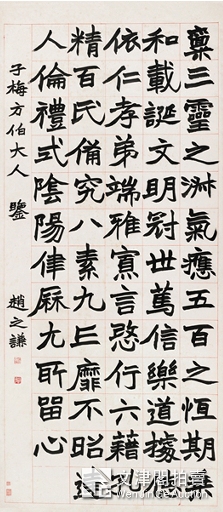 稟三靈之淑氣應五百之恆期
和載誕文明冠世篤信樂道據
依仁孝弟端雅寡言愨行六藉
精百氏備究八素九丘靡不昭
人倫禮式陰陽律厤尤所留心
子梅方伯大人 鑒 趙之謙
文津阁拍卖